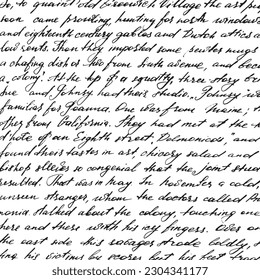 So, to quaint old Greenwich Village the art peo
soon came prowling, hunting for north windows
and eighteenth century gables and Dutch attics a
low rents. Then they imported some pewter mugs
a chafing dish or two from Sixth avenue, and beca
a colony. At the top of a squatty, three story bri
Sue and Johnsy had their studio. "Johnsy wa
familiar for Joanna. One was from Maine; t
other from California. They had met at the
d'hote of an Eighth street, Delmonicos," and
found their tastes in art, chicory salad and
bishop sleeves so congenial that the joint studi
resulted. That was in May. In November a cold,
unseen stranger, whom the doctors called Pn
monia stalked about the colony, touching one
here and there with his icy fingers. Over on
the east side this ravager strode boldly,
ing his victims by scores but his feet trod
shutterstock.com · 2304341177